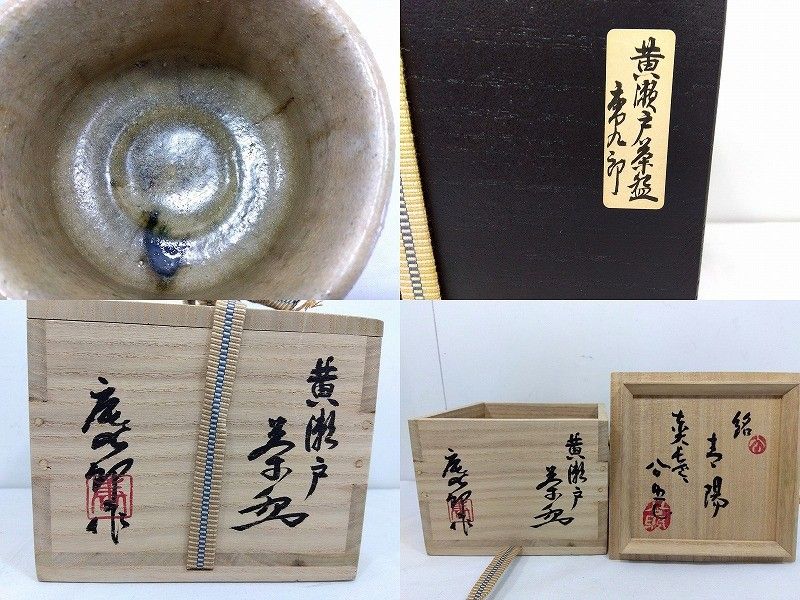 黄瀬戸茶盌
唐九郎
黄瀬戸
茶盌
唐九郎作
黄瀬戸
茶盌
唐九郎作
銘
青陽